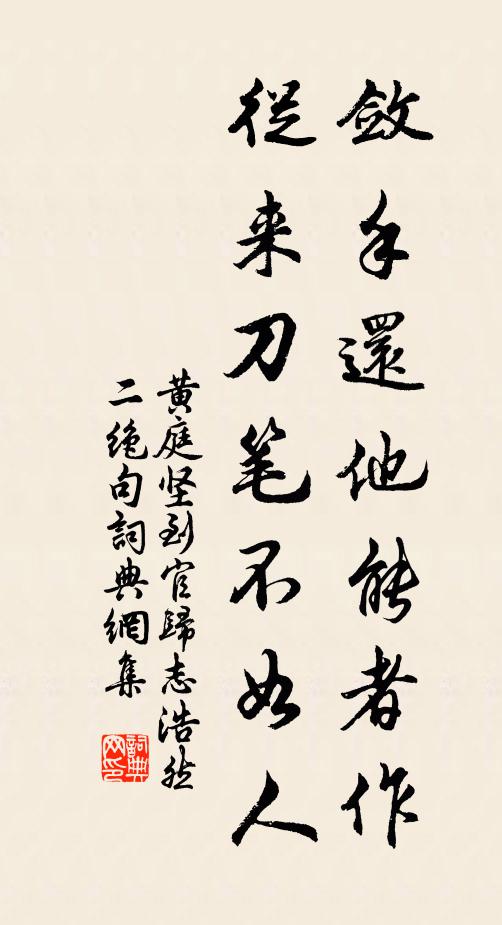 斂手還他能者作
從来刀笔不如人
黄庭坚到官歸志浩然
二絶句詞典網集
詞典网印